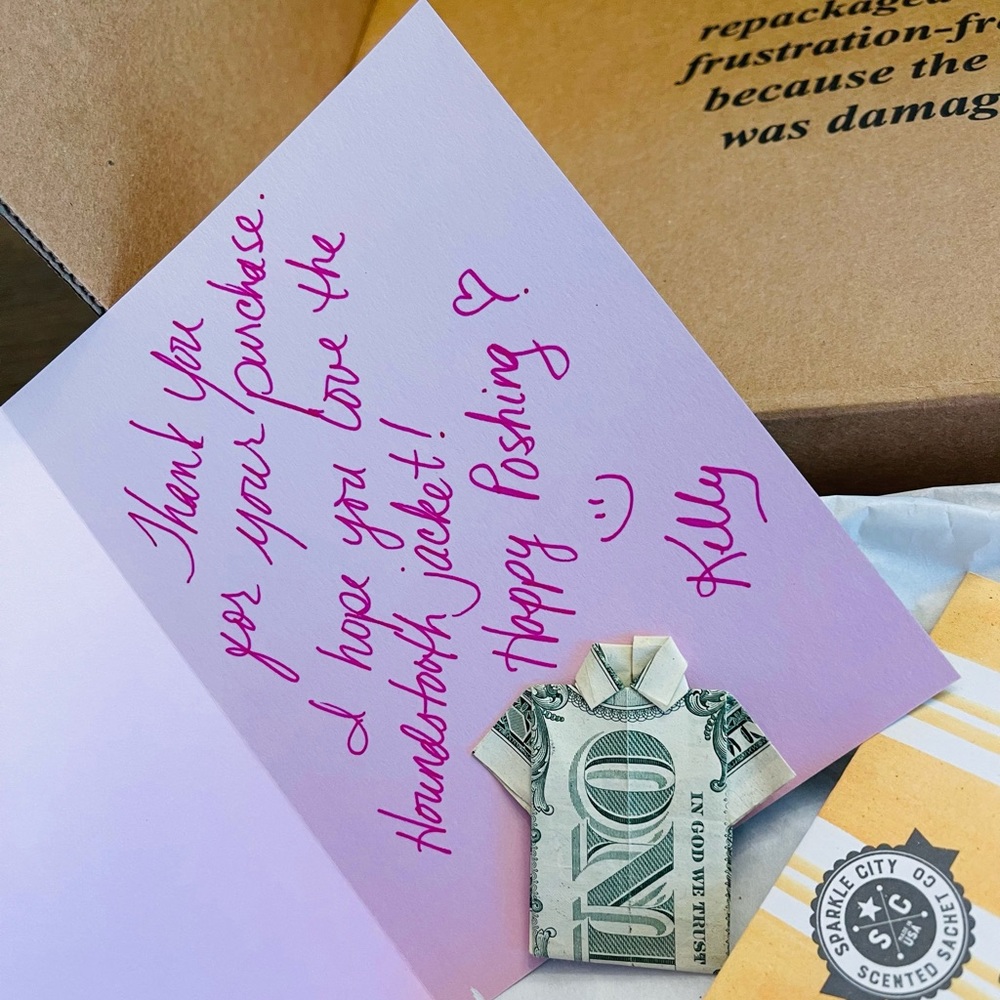 repackaged
frustration-fr
because the
was damag
Thank you
for your purchase.
I hope you love the
Houndstooth jacket!
Happy Poshing ♡.
Kelly
IN GOD WE TRUST
ONE
SPARKLE CITY
S C
MADE IN
USA
SCENTED SACHET CO